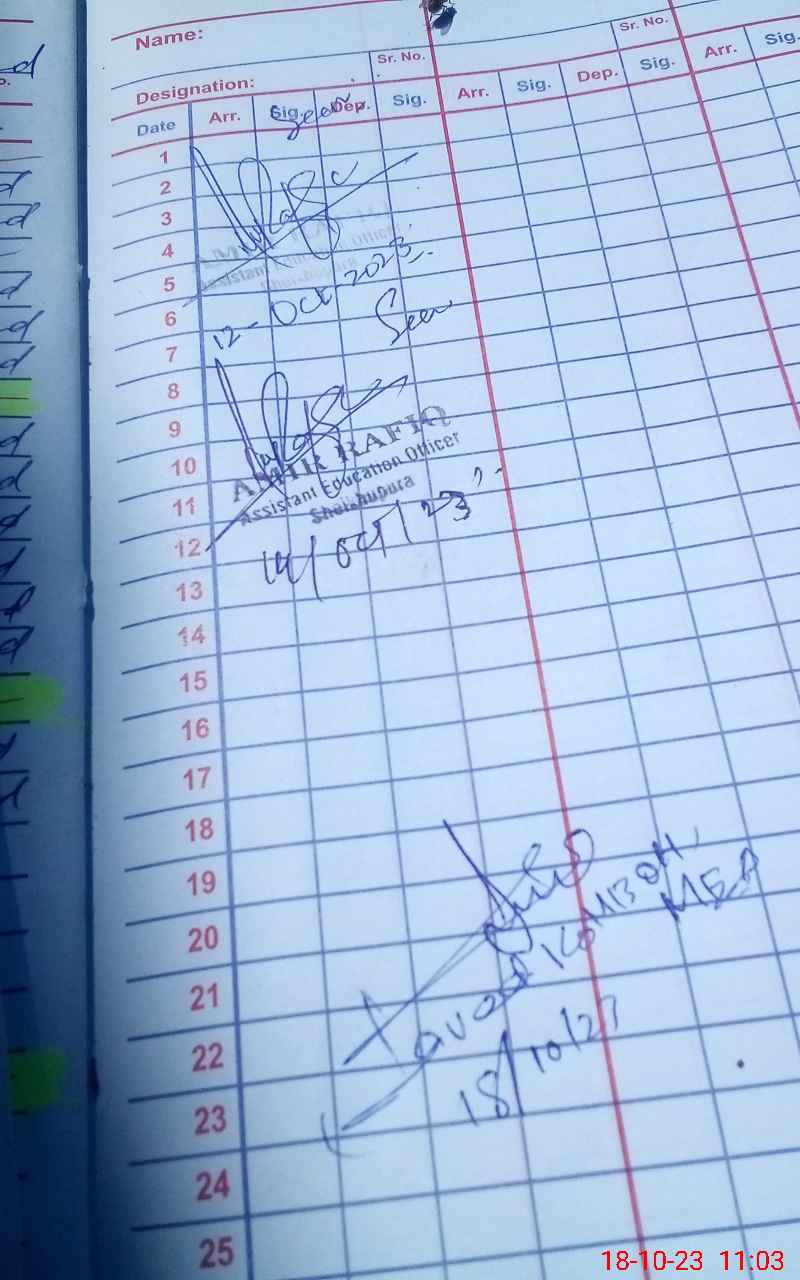 Name:
Sr. No. Sr. No.
Designation:
Date Arr. Sig. Dep. Sig. Arr. Sig. Dep. Sig. Arr. Sig.
Seen
1
2
3
4
Assistant Education Officer
5
12-Oct-2023
6
Seen
7
8
9
AMIR RAFIQ
10
Assistant Education Officer
11
Sheikhupura
12
14/Oct/23
13
14
15
16
17
18
19
KAMBOH
MEA
20
Javad
21
18/10/23
22
23
24
25
18-10-23 11:03